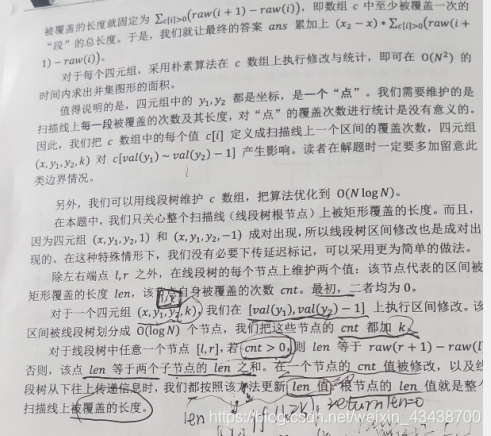 被覆盖的长度就固定为 ∑c[i]>0(raw(i + 1) − raw(i)), 即数组 c 中至少被覆盖一次的
"段"的总长度。于是，我们就让最终的答案 ans 累加上 (x₂ − x) * ∑c[i]>0(raw(i +
1) − raw(i))。
对于每个四元组，采用朴素算法在 c 数组上执行修改与统计，即可在 O(N²) 的
时间内求出并集图形的面积。
值得说明的是，四元组中的 y₁, y₂ 都是坐标，是一个"点"。我们需要维护的是
扫描线上每一段被覆盖的次数及其长度，对"点"的覆盖次数进行统计是没有意义的。
因此，我们把 c 数组中的每个值 c[i] 定义成扫描线上一个区间的覆盖次数，四元组
(x, y₁, y₂, k) 对 c[val(y₁) ~ val(y₂) − 1] 产生影响。读者在解题时一定要多加留意此
类边界情况。
另外，我们可以用线段树维护 c 数组，把算法优化到 O(N log N)。
在本题中，我们只关心整个扫描线（线段树根节点）上被矩形覆盖的长度。而且，
因为四元组 (x, y₁, y₂, 1) 和 (x, y₁, y₂, −1) 成对出现，所以线段树区间修改也是成对出
现的。在这种特殊情形下，我们没有必要下传延迟标记，可以采用更为简单的做法。
除左右端点 l, r 之外，在线段树的每个节点上维护两个值：该节点代表的区间被
矩形覆盖的长度 len，该自身被覆盖的次数 cnt。最初，二者均为 0。
对于一个四元组 (x, y₁, y₂, k)，我们在 [val(y₁), val(y₂) − 1] 上执行区间修改。该
区间被线段树划分成 O(log N) 个节点，我们把这些节点的 cnt 都加 k。
对于线段树中任意一个节点 [l, r]，若 cnt > 0，则 len 等于 raw(r + 1) − raw(l
否则，该点 len 等于两个子节点的 len 之和。在一个节点的 cnt 值被修改，以及线
段树从下往上传递信息时，我们都按照该方法更新 len 值。根节点的 len 值就是整个
扫描线上被覆盖的长度。
len return len=0
https://blog.csdn.net/weixin_43438700